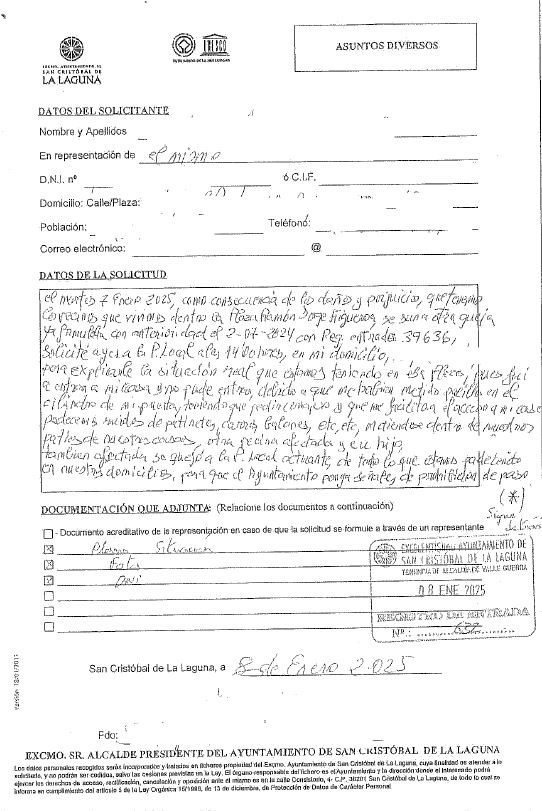 EXCMO. AYUNTAMIENTO DE
SAN CRISTÓBAL DE
LA LAGUNA
UNESCO
ASUNTOS DIVERSOS
DATOS DEL SOLICITANTE
Nombre y Apellidos
En representación de el mismo
D.N.I. nº ó C.I.F.
Domicilio: Calle/Plaza:
Población: Teléfono:
Correo electrónico: @
DATOS DE LA SOLICITUD
el martes 7 Enero 2025, como consecuencia de los daños y perjuicio, que tenemos
los vecinos que vivimos dentro la Plaza Ramón Jorge Figueroa, se suma otra queja
ya formulada con anterioridad el 2-07-2024 con Reg. entrada 39636,
Solicité ayer a la P. Local a las 14 00 horas, en mi domicilio,
para explicarle la situación real que estamos teniendo en esa Plaza, pues fui
a entrar a mi casa y no pude entrar, debido a que me habían metido palillo en el
cilindro de mi puerta, teniendo que pedir y que me facilitara el acceso a mi casa
padecemos ruidos de patinetes, balones, etc, etc, dentro de nuestros
patios de nuestras casas, otra vecina afectada y su hijo,
tambien afectada se quejó a la P. Local actuante, de todo lo que estamos padeciendo
en nuestros domicilios, para que el Ayuntamiento ponga señales de prohibición de paso
(*)
Sigue detrás
DOCUMENTACIÓN QUE ADJUNTA: (Relacione los documentos a continuación)
- Documento acreditativo de la representación en caso de que la solicitud se formule a través de un representante
Plano Situación
Fotos
Dni
EXCELENTÍSIMO AYUNTAMIENTO DE
SAN CRISTÓBAL DE LA LAGUNA
TENENCIA DE ALCALDÍA DE VALLE GUERRA
08 ENE 2025
REGISTRO DE ENTRADA
Nº:
San Cristóbal de La Laguna, a 8 de Enero 2.025
Fdo:
EXCMO. SR. ALCALDE PRESIDENTE DEL AYUNTAMIENTO DE SAN CRISTÓBAL DE LA LAGUNA
Los datos personales recogidos serán incorporados y tratados en ficheros propiedad del Excmo. Ayuntamiento de San Cristóbal de La Laguna, cuya finalidad es atender a lo
solicitado, y no podrán ser cedidos, salvo las cesiones previstas en la Ley. El órgano responsable del fichero es el Ayuntamiento y la dirección donde el interesado podrá
ejercer los derechos de acceso, rectificación, cancelación y oposición ante el mismo es en la calle Consistorio, 4- C.P. 38201 San Cristóbal de La Laguna, de todo lo cual se
informa en cumplimiento del artículo 5 de la Ley Orgánica 15/1999, de 13 de diciembre, de Protección de Datos de Carácter Personal.